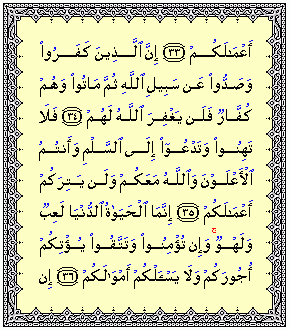 أَعْمَـٰلَكُـمْ ﴿٣٣﴾ إِنَّ ٱلَّـذِيـنَ كَفَـرُواْ
وَصَـدُّواْ عَـن سَبِيـلِ ٱللَّهِ ثُمَّ مَاتُواْ وَهُـمْ
كُفَّـارٌ فَلَـن يَغْفِـرَ ٱللَّـهُ لَهُـمْ ﴿٣٤﴾ فَـلَا
تَهِنُـواْ وَتَدْعُـوٓاْ إِلَـى ٱلسَّـلْمِ وَأَنـتُـمُ
ٱلْأَعْلَـوْنَ وَٱللَّـهُ مَعَكُـمْ وَلَـن يَـتِرَكُـمْ
أَعْمَـٰلَكُمْ ﴿٣٥﴾ إِنَّمَا ٱلْحَيَوٰةُ ٱلدُّنْيَا لَعِبٌ
وَلَهْـوٌ ۚ وَإِن تُؤْمِنُـواْ وَتَتَّقُـواْ يُـؤْتِكُـمْ
أُجُورَكُـمْ وَلَا يَسْـَٔلْكُـمْ أَمْوَٰلَكُـمْ ﴿٣٦﴾ إِن